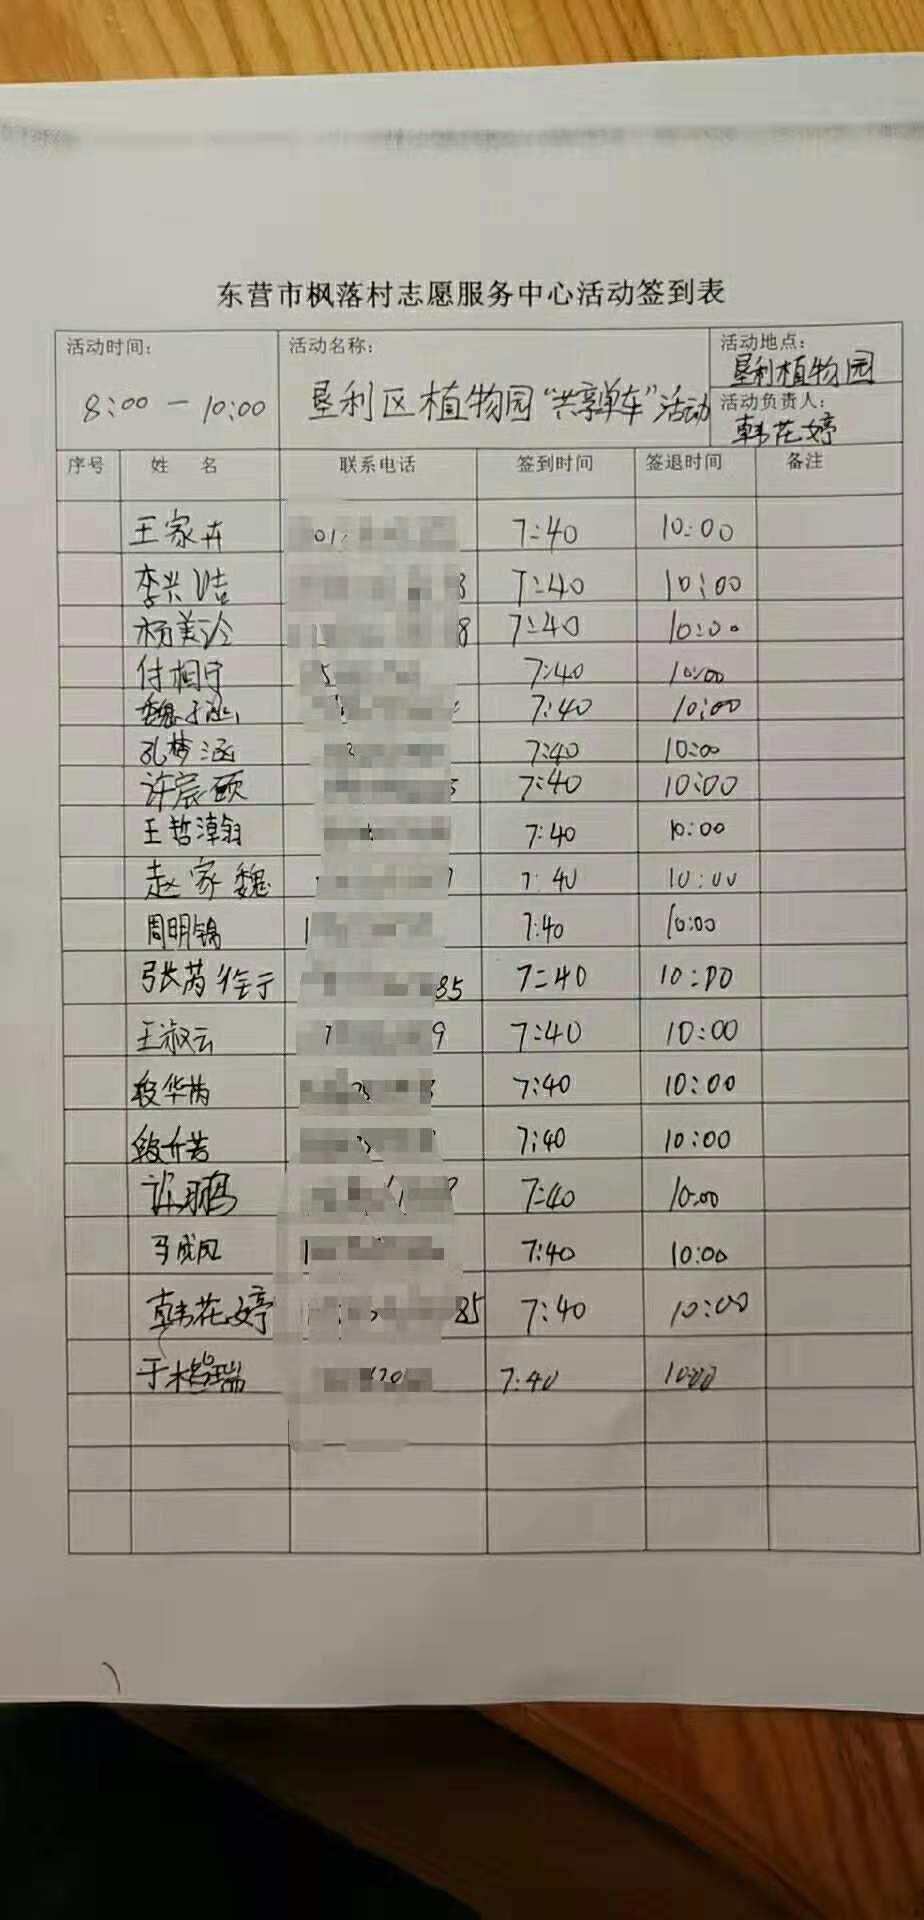 东营市枫落村志愿服务中心活动签到表
活动时间： 活动名称： 活动地点：
8:00 — 10:00 垦利区植物园“共享单车”活动 垦利植物园
活动负责人：
韩花婷
序号 姓 名 联系电话 签到时间 签退时间 备注
王家卉 7:40 10:00
李兴洁 7:40 10:00
杨美泠 7:40 10:00
付相宇 7:40 10:00
魏子涵 7:40 10:00
孔梦涵 7:40 10:00
许宸硕 7:40 10:00
王哲 7:40 10:00
赵家魏 7:40 10:00
周明锦 7:40 10:00
张芮 85 7:40 10:00
王淑云 9 7:40 10:00
段华芮 7:40 10:00
段 7:40 10:00
许鹏 7:40 10:00
马成凤 7:40 10:00
韩花婷 85 7:40 10:00
于 瑞 7:40 10:00